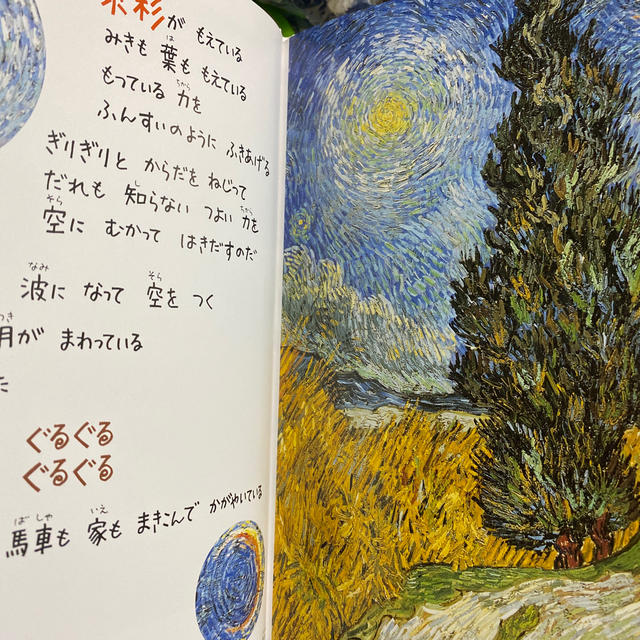 杉が もえている
みきも 葉も もえている
もっている 力を
ふんすいのように ふきあげる
ぎりぎりと からだを ねじって
だれも 知らない つよい 力を
空に むかって はきだすのだ
波に なって 空を つく
月が まわっている
た
ぐるぐる
ぐるぐる
馬車も 家も まきこんで かがやいている